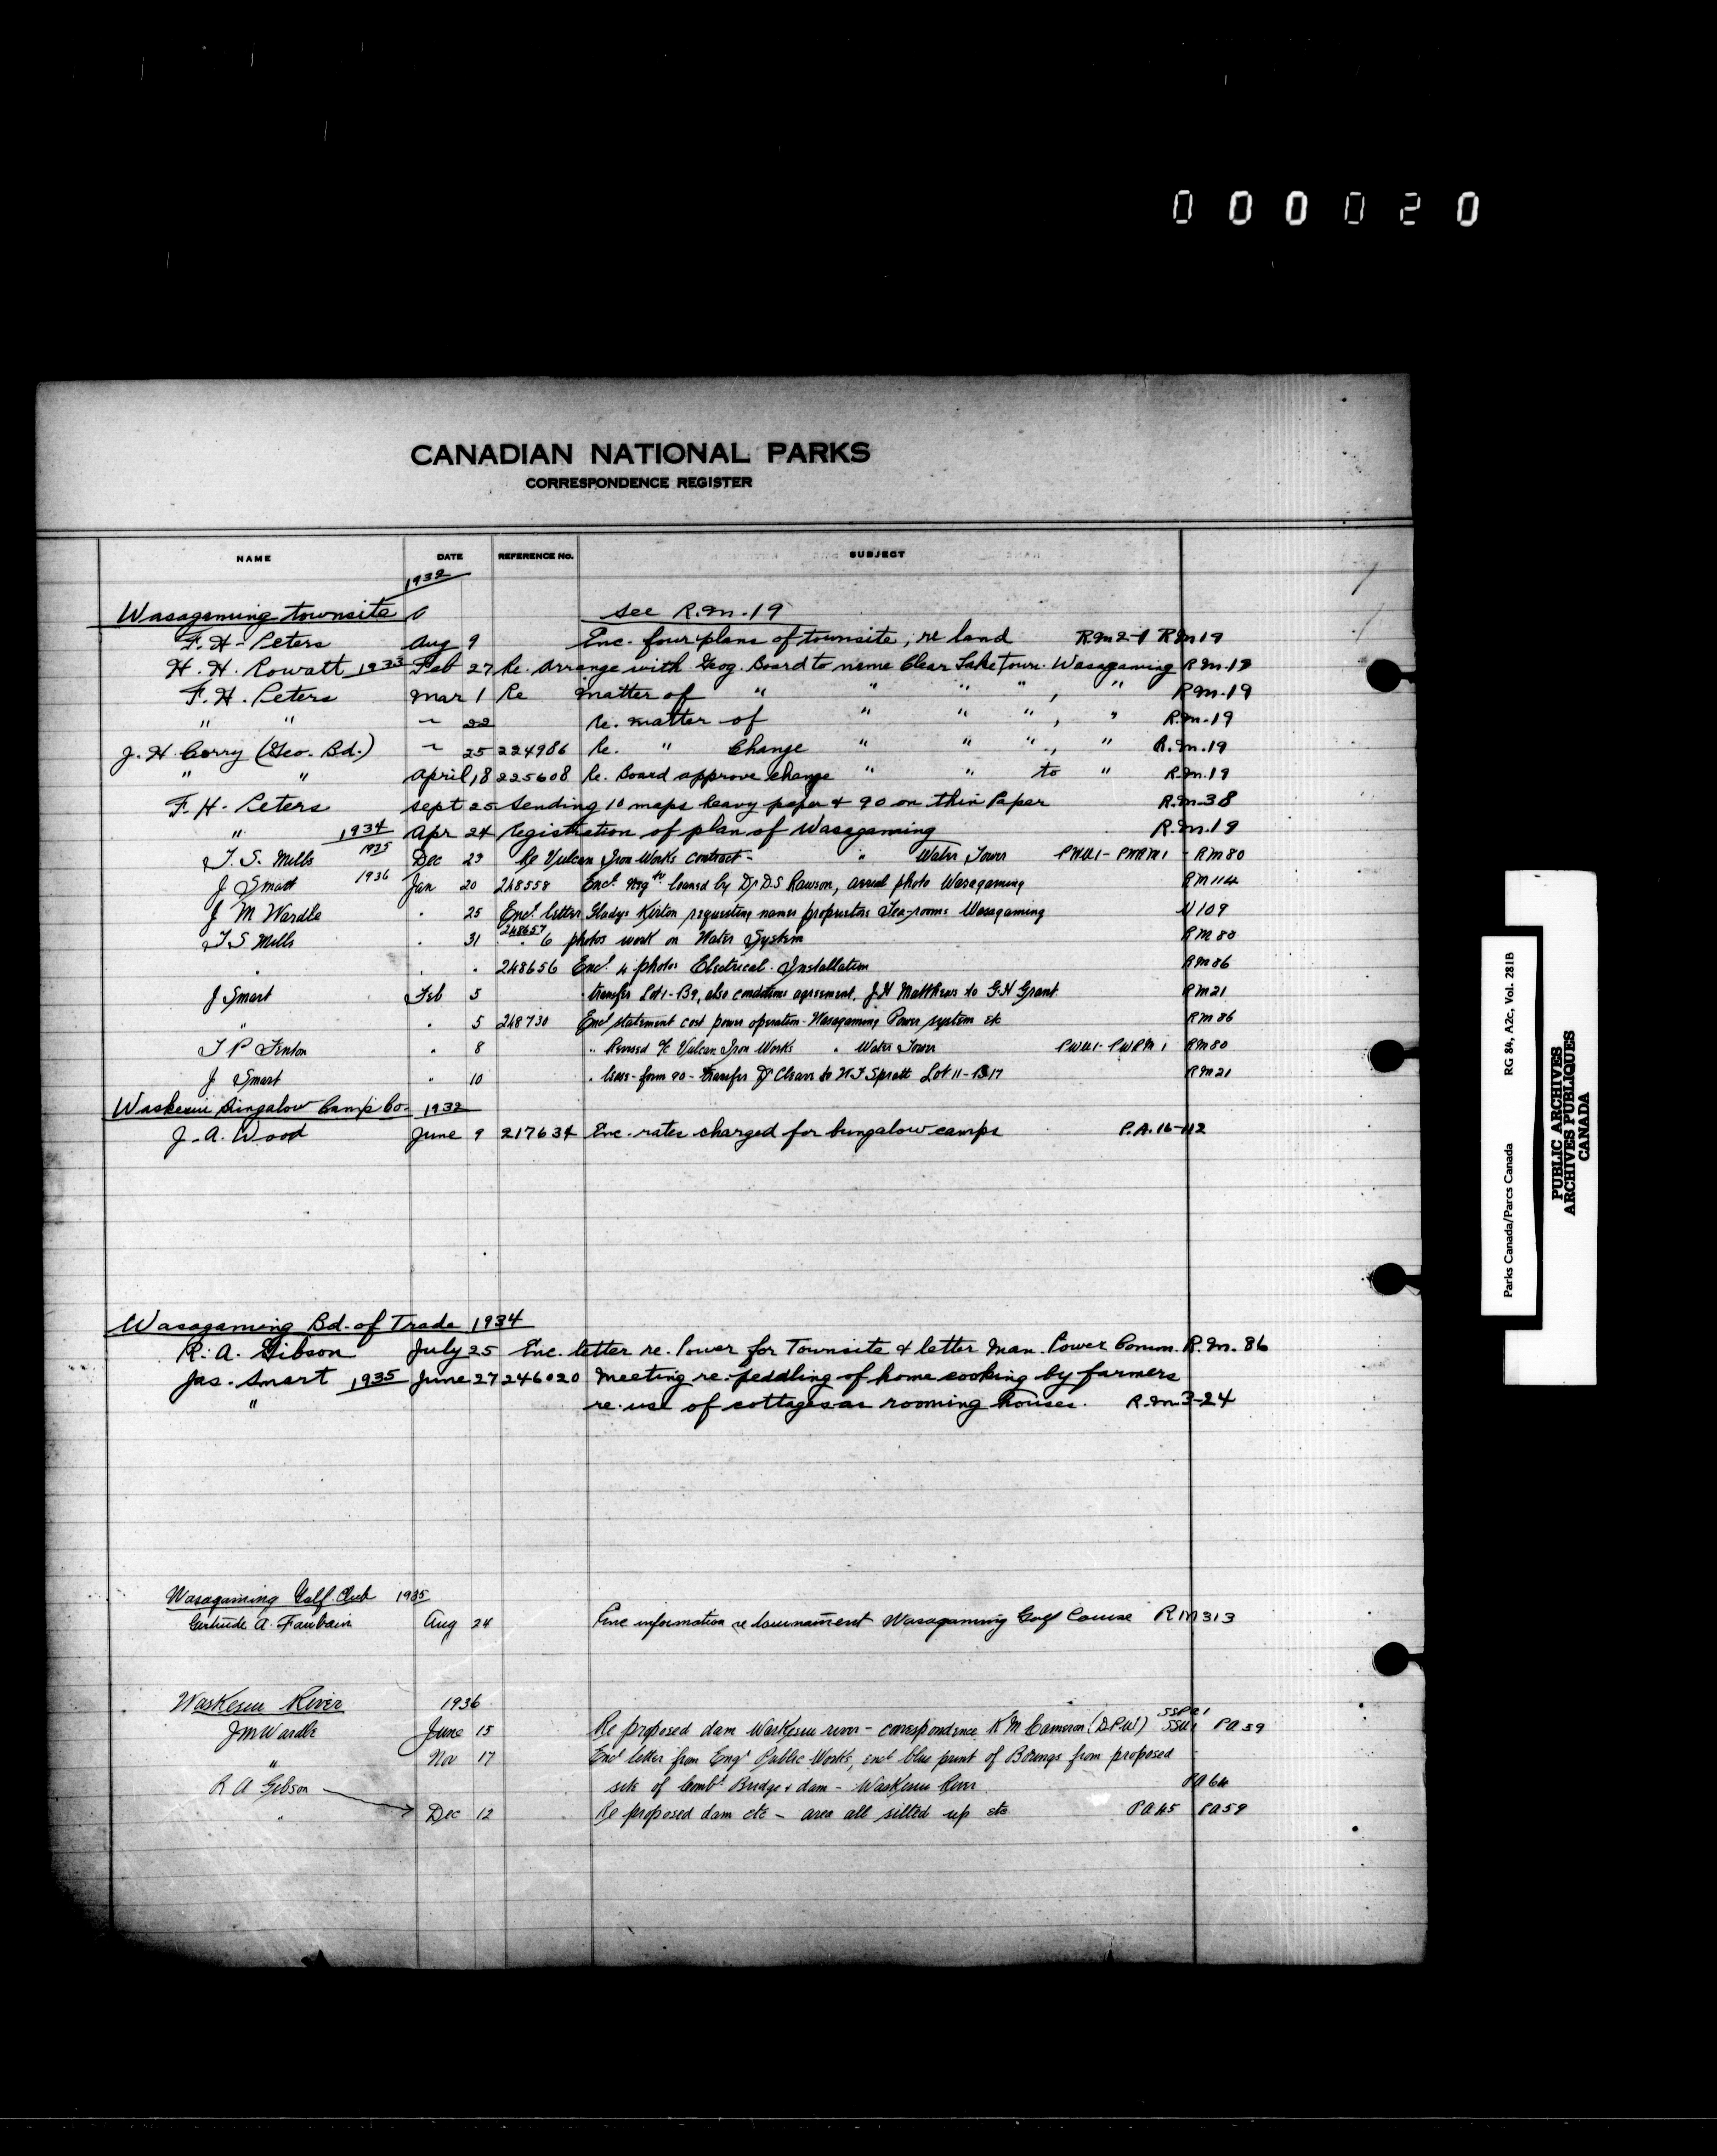 000020
CANADIAN NATIONAL PARKS
CORRESPONDENCE REGISTER
NAME DATE REFERENCE No. SUBJECT
1932
Wasagaming townsite see R.M.-19
F. H. Peters Aug 9 Enc. four plans of townsite, re land R.M 2-1 R.M 19
H. H. Rowatt 1933 Feb 27 Re. Arrange with Geog. Board to name Clear Lake Town. Wasagaming R.M.-19
F. H. Peters Mar 1 Re matter of " " " " , " R.M.-19
" " ~ 22 Re. matter of " " " , " R.M.-19
J. H Corry (Geo. Bd.) ~ 25 224986 Re. " Change " " " , " R.M.19
" " April 18 225608 Re. Board approve change " " to " R.M.19
F. H. Peters Sept 25 Sending 10 maps heavy paper & 90 on thin Paper R.M-38
" 1934 Apr 24 Registration of plan of Wasagaming R.M.19
T. S. Mills 1935 Dec 23 Re Vulcan Iron Works contract - " Water Tower PWU1- PWRM1 - RM80
J Smart 1936 Jan 20 248558 Encl. neg loaned by Dr D.S Rawson, aerial photo Wasagaming RM114
J M Wardle . 25 Encl. letter Gladys Kirton requesting names proprietors Tea-rooms Wasagaming U109
T S Mills . 31 248657 . 6 photos work on Water System RM80
. . . 248656 Encl. 4 photos Electrical Installation RM86
J Smart Feb 5 . transfer Lot 1-B9, also conditions agreement, J.H Matthews to G.H Grant RM21
" . 5 248730 Encl statement cost power operation - Wasagaming Power system etc RM86
T P Fenton . 8 .. Revised Vulcan Iron Works . Water Tower PWU1- PWRM1 RM80
J Smart .. 10 . form 90 - transfer to Spratt Lot 11-B17 RM21
Waskesiu Bungalow Camp Co. 1932
J. A. Wood June 9 217634 Enc. rates charged for bungalow camps P.A.16-112
Wasagaming Bd. of Trade 1934
R. A. Gibson July 25 Enc. letter re. Power for Townsite & letter Man. Power Comm. R.M. 86
Jas. Smart 1935 June 27 246020 Meeting re. peddling of home cooking by farmers
" re. use of cottages as rooming houses. R.M 3-24
Wasagaming Golf Club 1935
Gertrude A. Aug 24 Enc information re tournament Wasagaming Golf Course RM313
Waskesiu River 1936
J M Wardle June 15 Re proposed dam Waskesiu river - correspondence K M Cameron (D.P.W) SSPA1 SSU1 PA59
" Nov 17 Encl letter from Engr Public Works, encl blue print of Borings from proposed
R A Gibson site of comb. Bridge & dam - Waskesiu River PA64
" Dec 12 Re proposed dam etc - area all silted up etc PA45 PA59
Parks Canada/Parcs Canada RG 84, A2c, Vol. 281B
PUBLIC ARCHIVES
ARCHIVES PUBLIQUES
CANADA